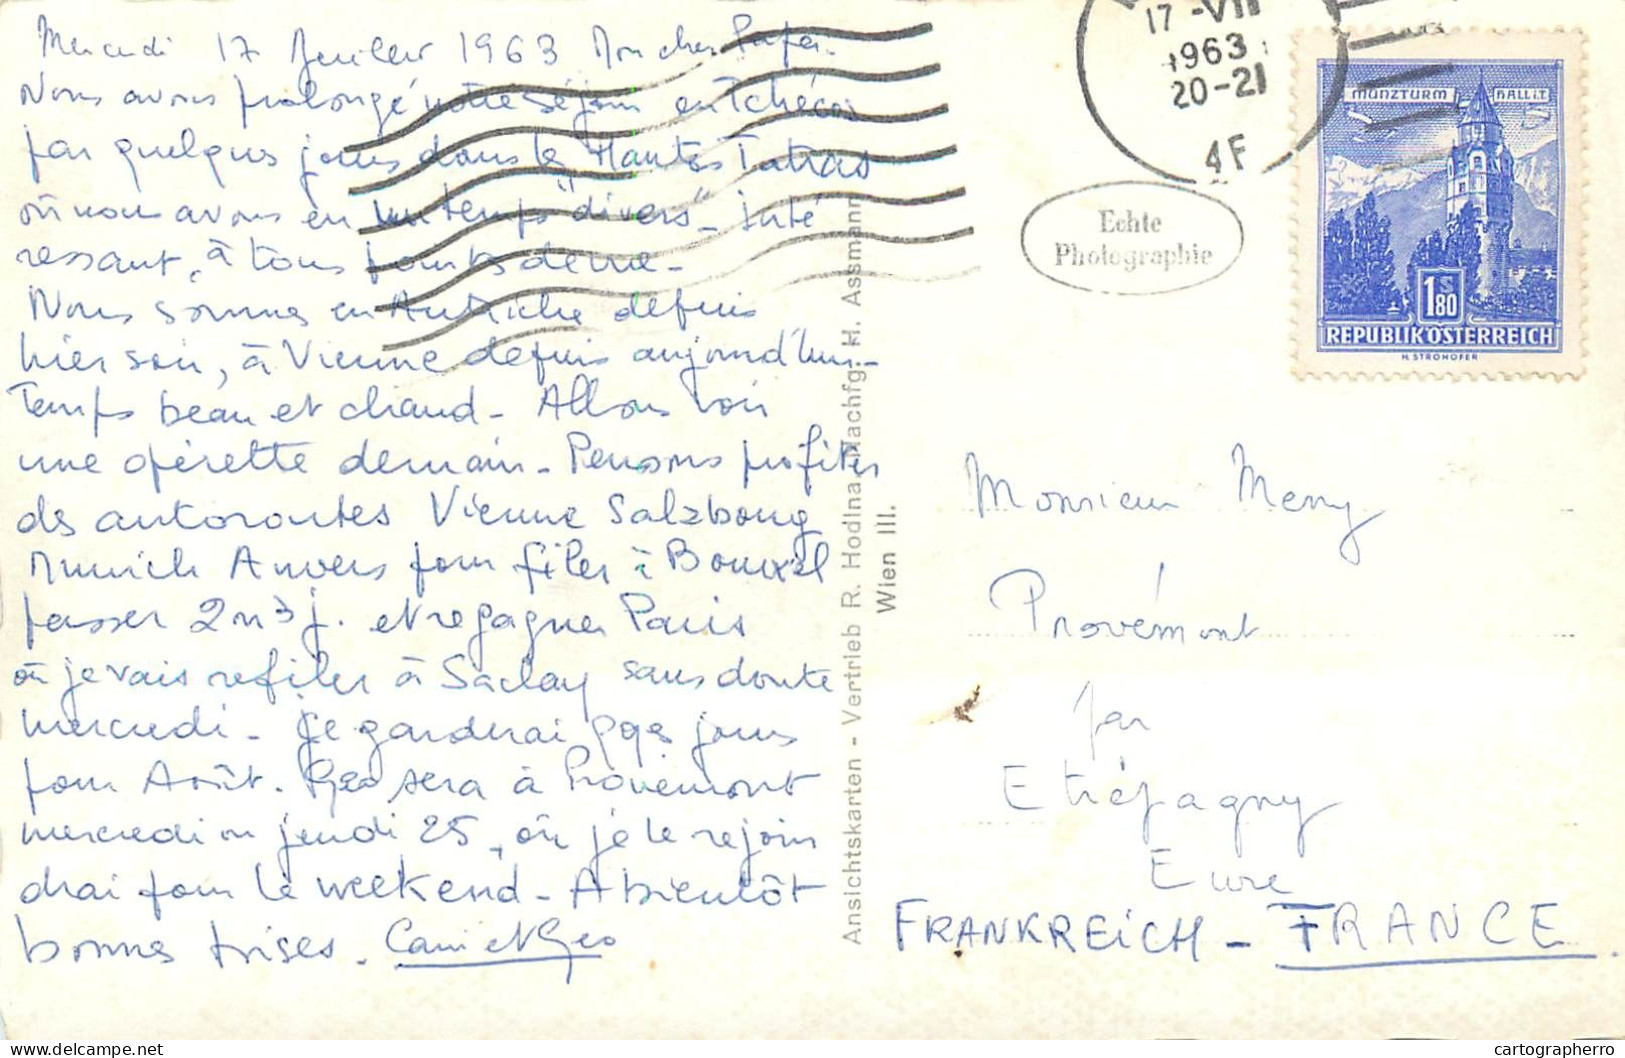 Mercredi 17 Juillet 1963 Mon cher Papa.
Nous avons prolongé notre séjour en Tchéco
par quelques jours dans les Hautes Tatras
où nous avons eu un temps "divers" - Inté
ressant, à tous points de vue -
Nous sommes en Autriche depuis
hier soir, à Vienne depuis aujourd'hui -
Temps beau et chaud - Allons voir
une opérette demain - Pensons profiter
des autoroutes Vienne Salzbourg
Munich Anvers pour filer à
passer 2 3 j. et regagner Paris
où je vais refiler à Saclay sans doute
mercredi - Je garderai qqes jours
pour Août. Geo sera à Provemont
mercredi ou jeudi 25, où je le rejoin
drai pour le weekend - A bientôt
bonnes bises. Cami et Geo
17 -VII
1963
20-21
4F
MÜNZTURM HALL i.T.
1 S 80
REPUBLIK ÖSTERREICH
H. STROHOFER
Echte
Photographie
Ansichtskarten - Vertrieb R. Hodina Nachfg. H. Assmann
Wien III.
Monsieur Mery
Provémont
par
Etrépagny
Eure
FRANKREICH - FRANCE
cartographerro